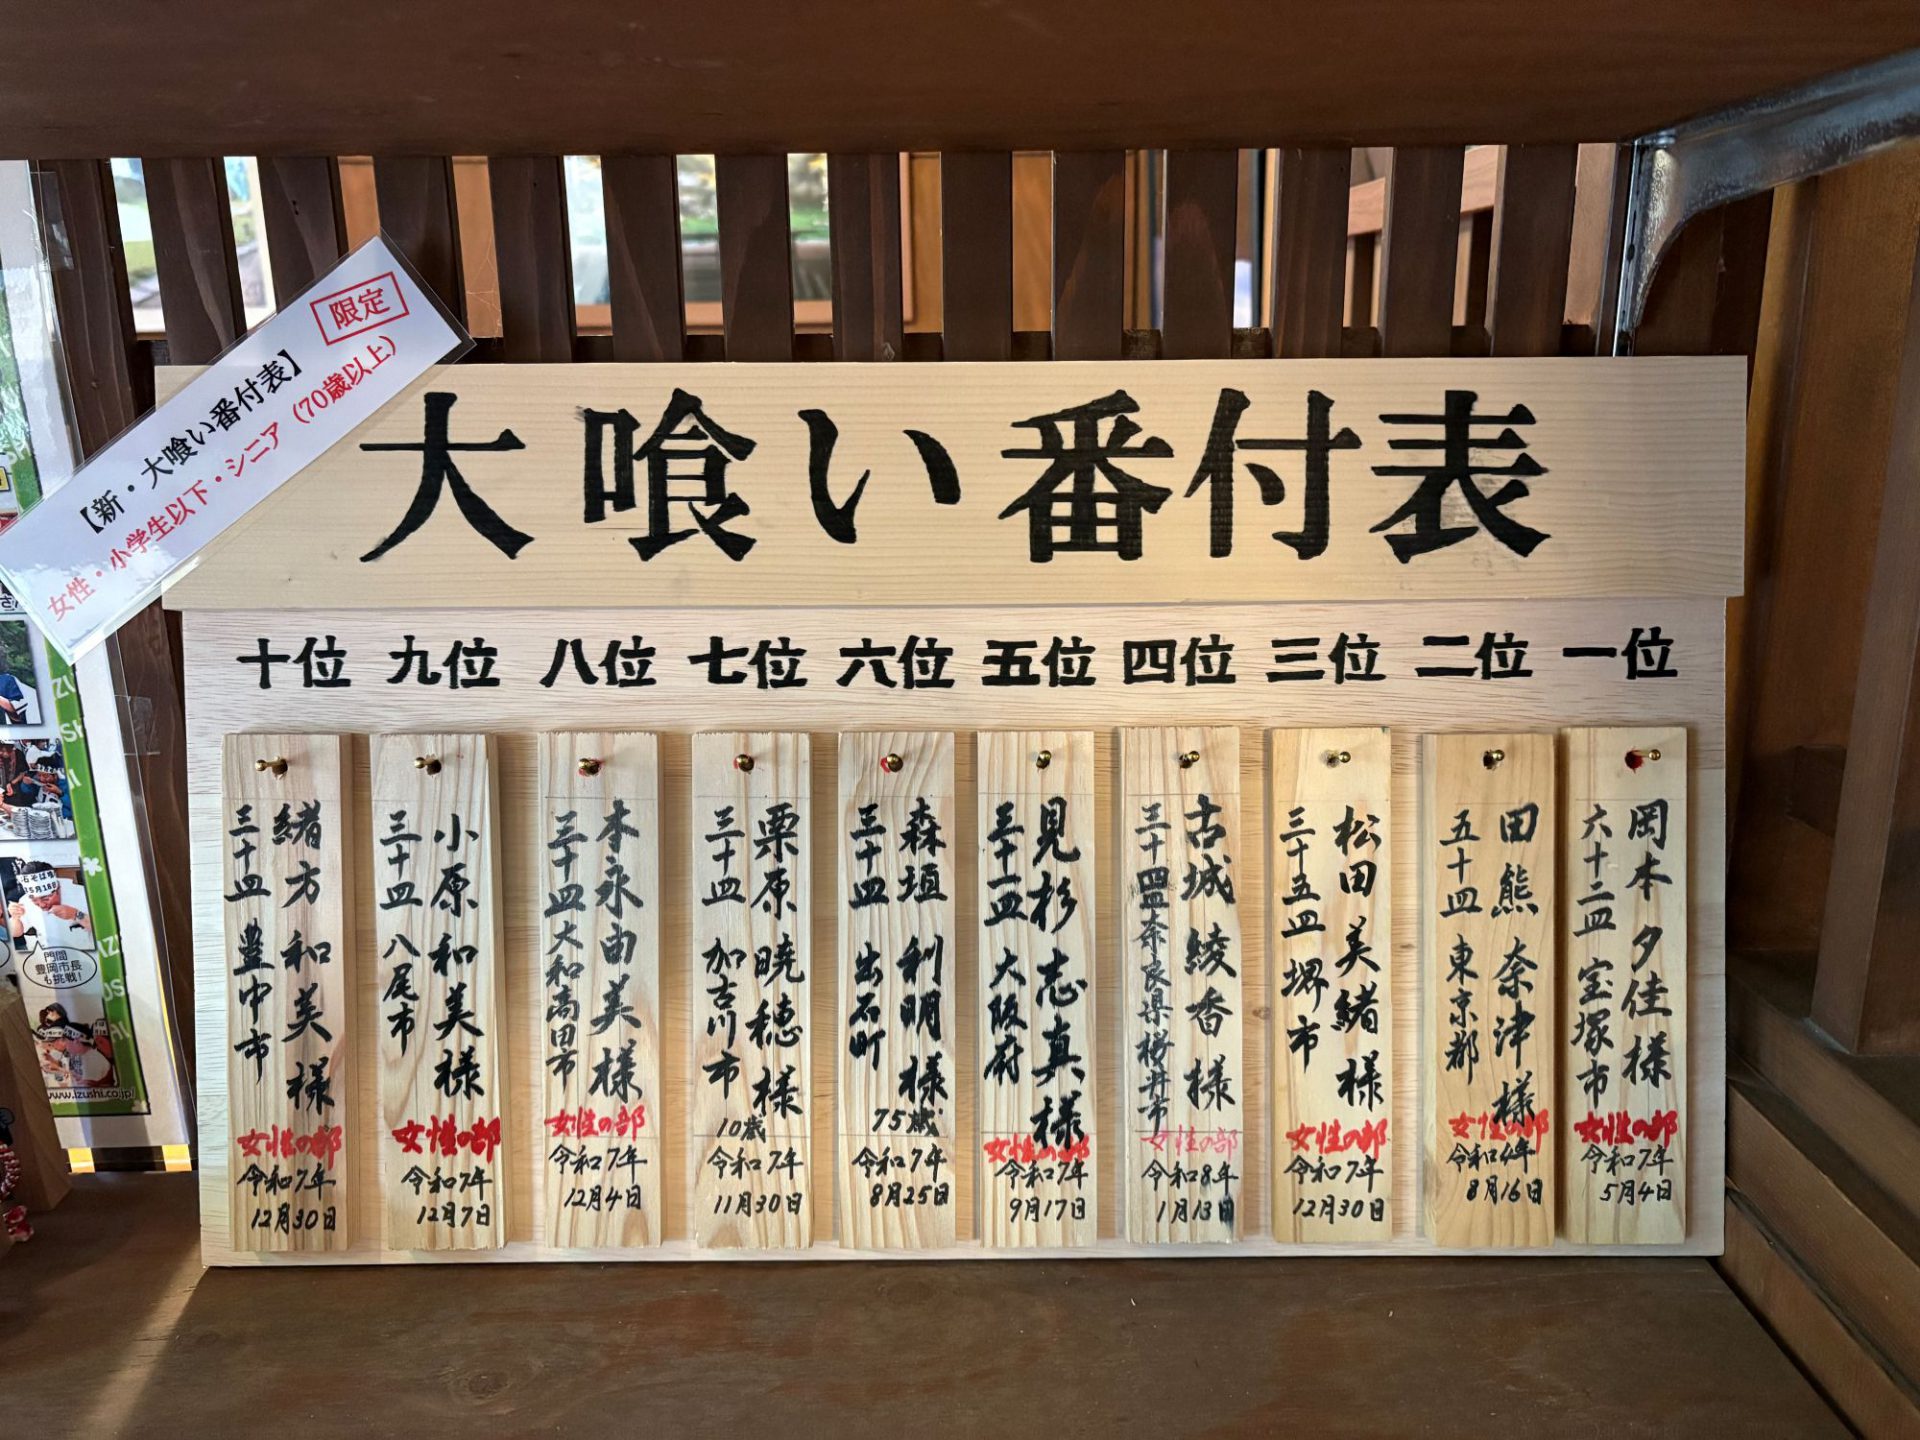 限定
【新・大喰い番付表】
女性・小学生以下・シニア（70歳以上）
大喰い番付表
一位
岡本夕佳様
六十二皿 宝塚市
女性の部
令和7年
5月4日
二位
田熊奈津様
五十皿 東京都
女性の部
令和4年
8月16日
三位
松田美緒様
三十五皿 堺市
女性の部
令和7年
12月30日
四位
古城綾香様
三十四皿 奈良県桜井市
女性の部
令和8年
1月13日
五位
見杉志真様
三十一皿 大阪府
女性の部
令和7年
9月17日
六位
森垣利明様
三十皿 出石町
75歳
令和7年
8月25日
七位
栗原暁穂様
三十皿 加古川市
10歳
令和7年
11月30日
八位
本永由美様
三十皿 大和高田市
女性の部
令和7年
12月4日
九位
小原和美様
三十皿 八尾市
女性の部
令和7年
12月7日
十位
緒方和美様
三十皿 豊中市
女性の部
令和7年
12月30日
門間
豊岡市長
も挑戦!
www.izushi.co.jp/